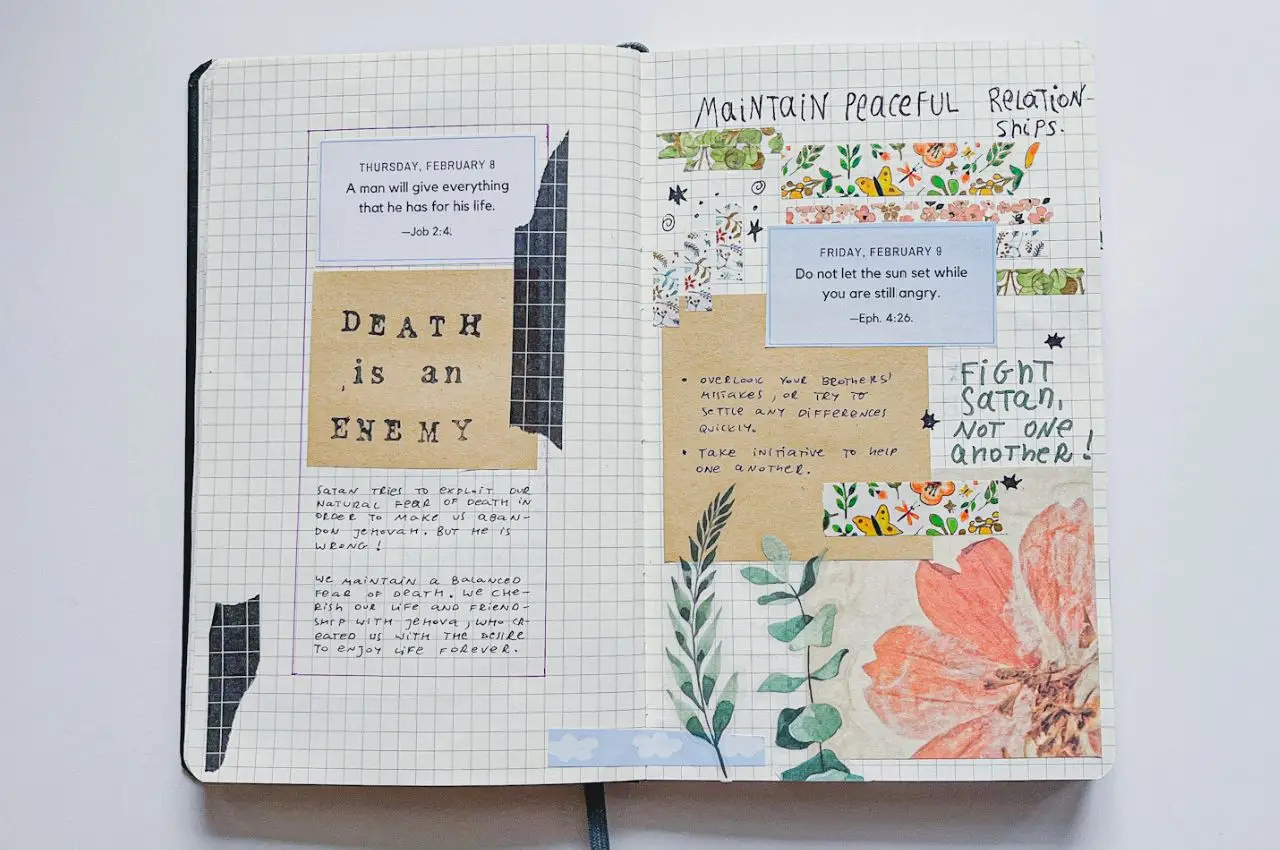 THURSDAY, FEBRUARY 8
A man will give everything
that he has for his life.
—Job 2:4.
DEATH
is an
ENEMY
SATAN TRIES TO EXPLOIT OUR
NATURAL FEAR OF DEATH IN
ORDER TO MAKE US ABAN-
DON JEHOVAH. BUT HE IS
WRONG!
WE MAINTAIN A BALANCED
FEAR OF DEATH. WE CHE-
RISH OUR LIFE AND FRIEND-
SHIP WITH JEHOVA, WHO CR-
EATED US WITH THE DESIRE
TO ENJOY LIFE FOREVER.
MAINTAIN PEACEFUL RELATION-
SHIPS.
FRIDAY, FEBRUARY 9
Do not let the sun set while
you are still angry.
—Eph. 4:26.
• OVERLOOK YOUR BROTHERS'
MISTAKES, OR TRY TO
SETTLE ANY DIFFERENCES
QUICKLY.
• TAKE INITIATIVE TO HELP
ONE ANOTHER.
FIGHT
SATAN,
NOT ONE
ANOTHER!